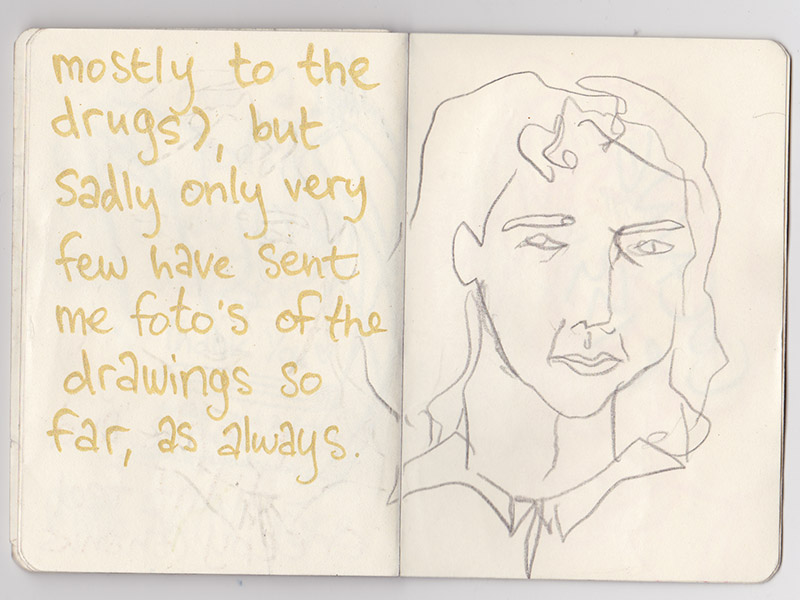 mostly to the
drugs), but
sadly only very
few have sent
me foto's of the
drawings so
far, as always.